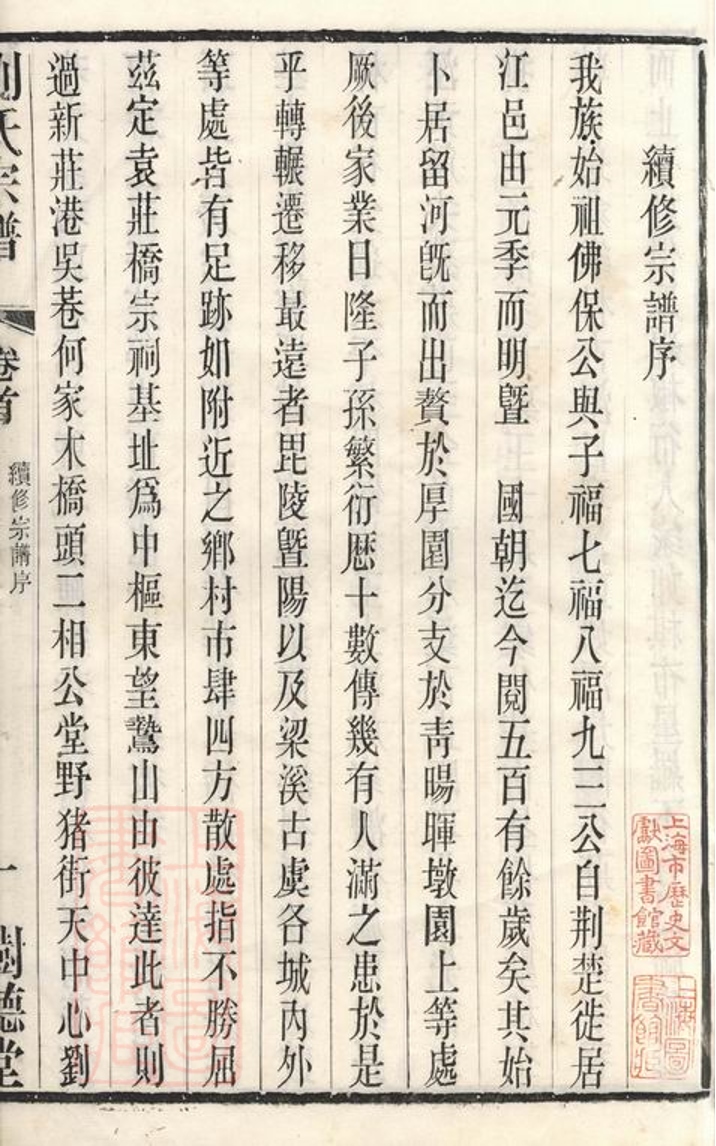 續修宗譜序
我族始祖佛保公與子福七福八福九三公自荆楚徙居
江邑由元季而明曁 國朝迄今閱五百有餘歲矣其始
卜居留河旣而出贅於厚園分支於靑暘暉墩園上等處
厥後家業日隆子孫繁衍歷十數傳幾有人滿之患於是
乎轉輾遷移最遠者毘陵曁陽以及梁溪古虞各城內外
等處皆有足跡如附近之鄉村市肆四方散處指不勝屈
茲定袁莊橋宗祠基址爲中樞東望鷲山由彼達此者則
過新莊港吳巷何家木橋頭二相公堂野猪街天中心劉
劉氏宗譜 卷首 續修宗譜序 一 樹德堂
上海市歷史文
獻圖書館藏
上海圖
書館藏